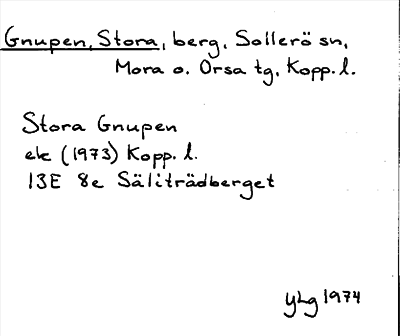 Gnupen, Stora, berg, Sollerö sn,
Mora o. Orsa tg, Kopp. l.
Stora Gnupen
ek (1973) Kopp. l.
13E 8e Säliträdberget
yLg 1974